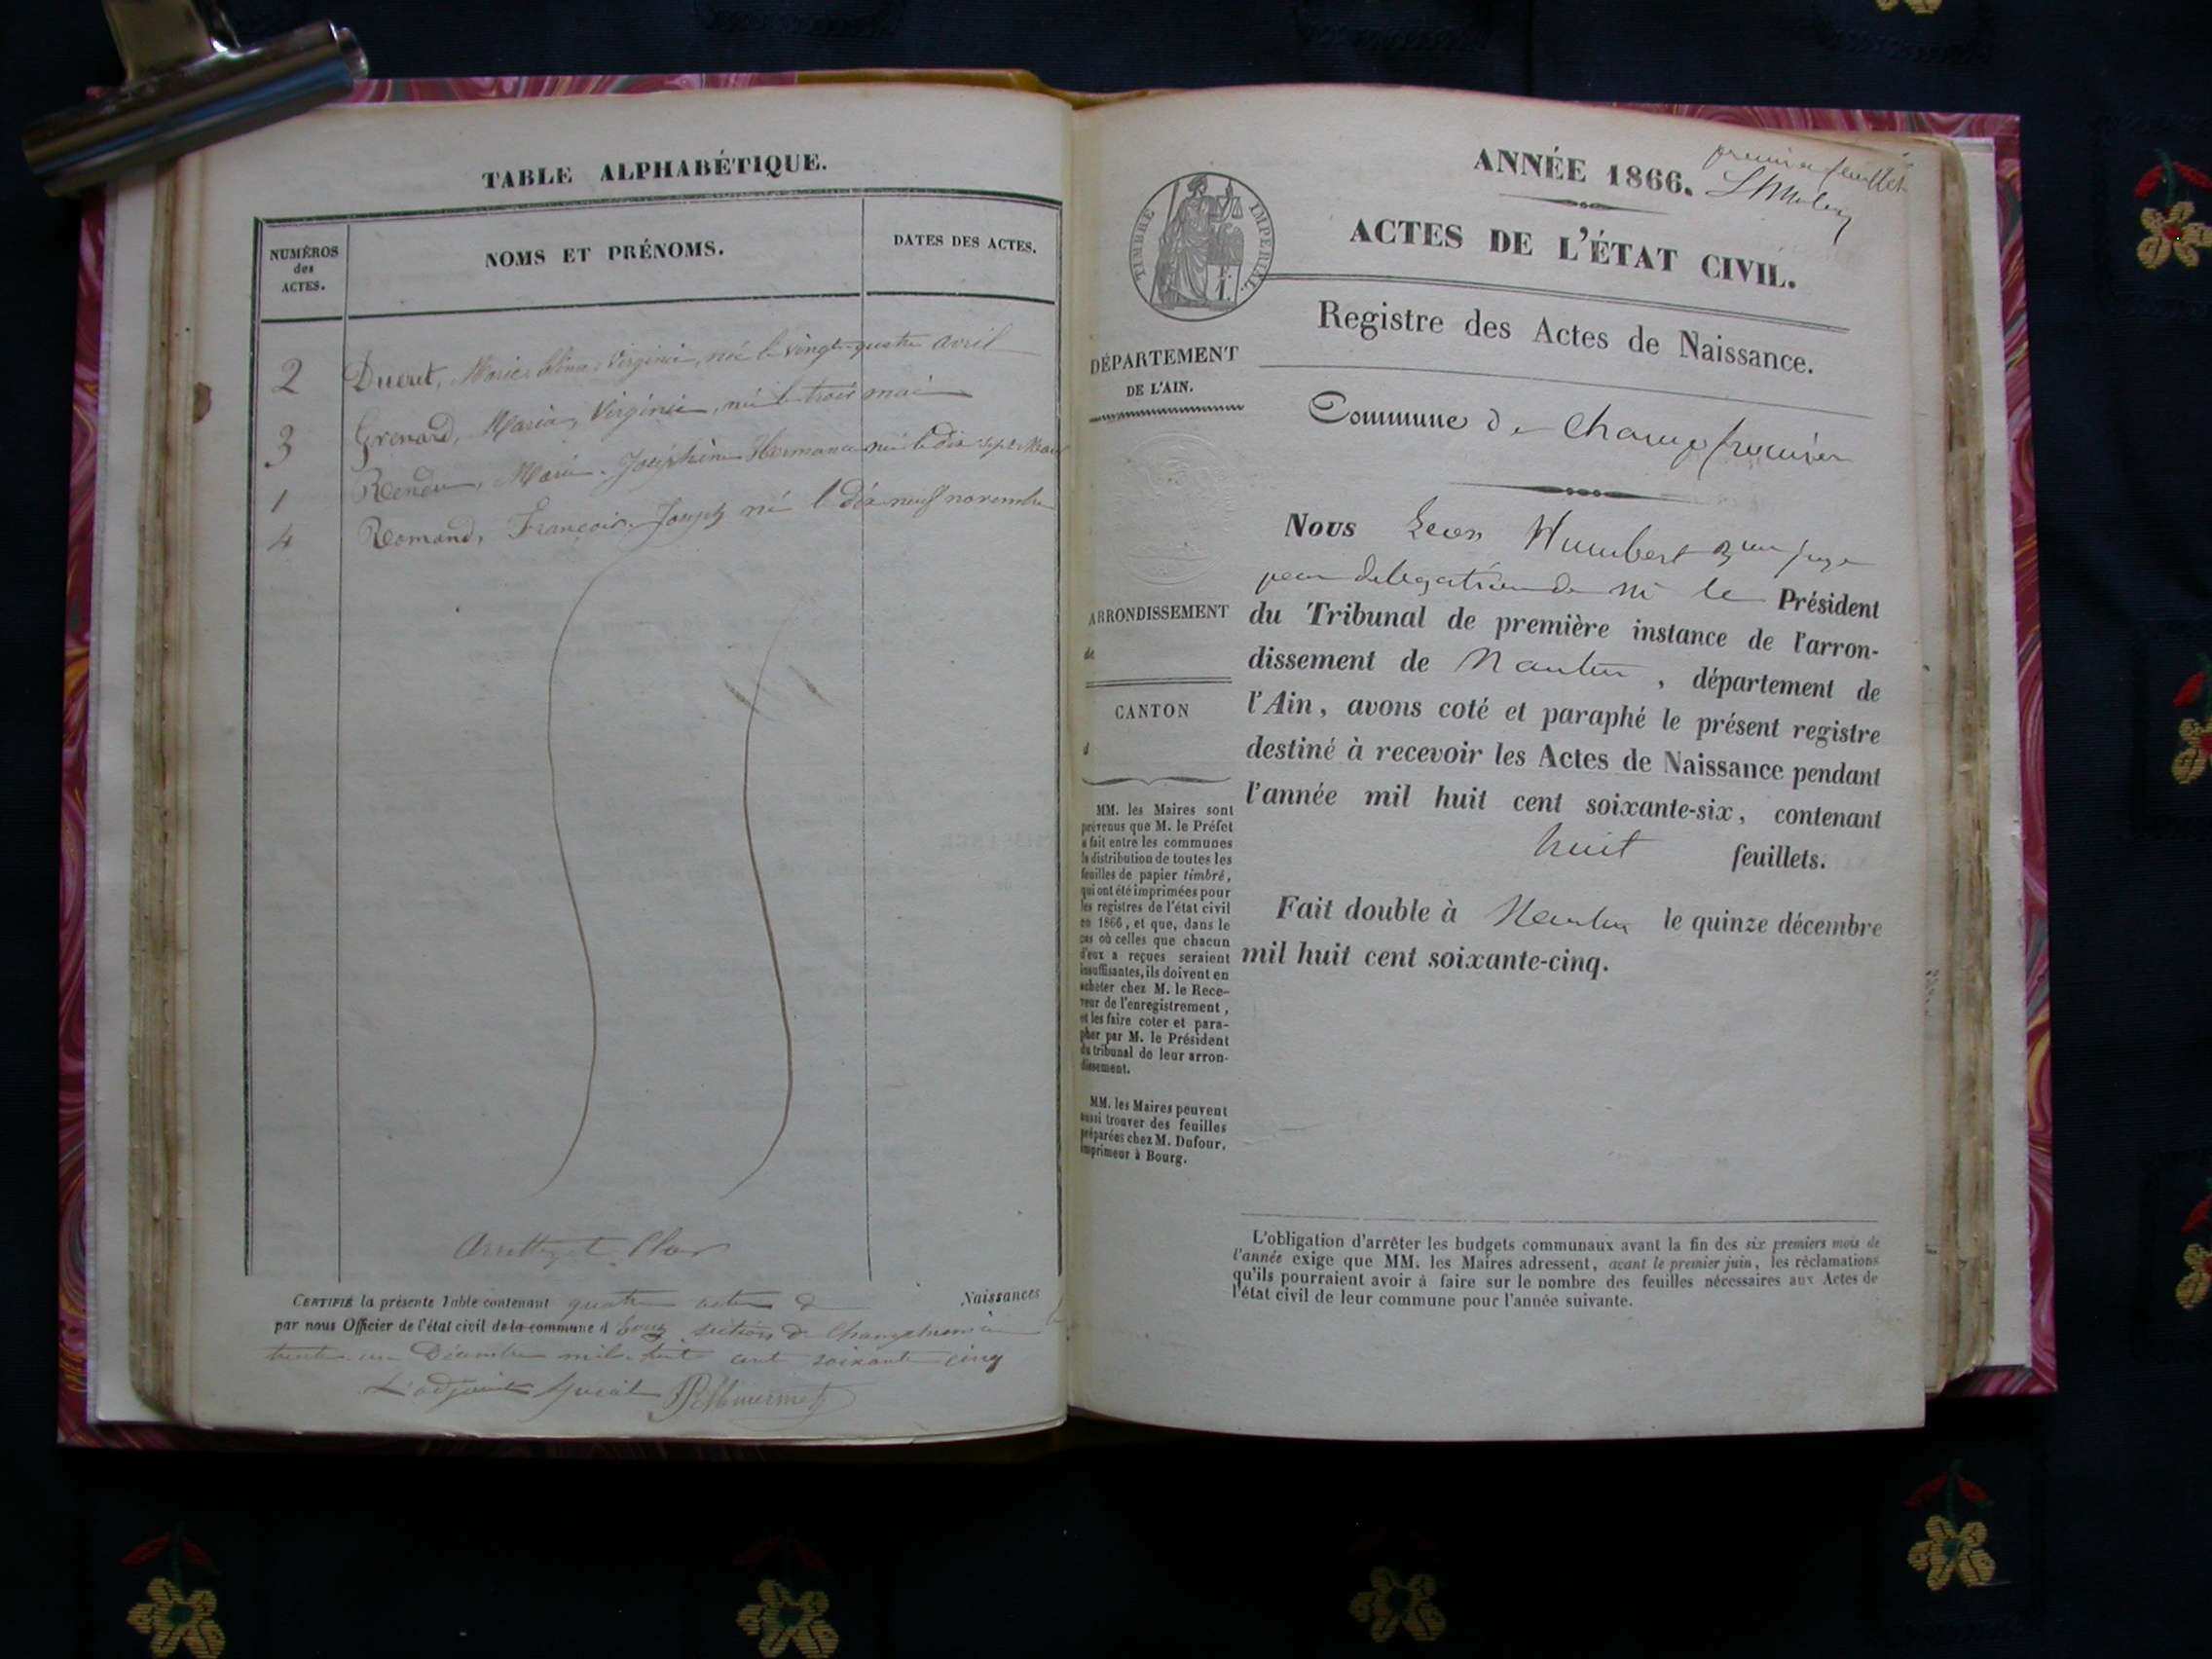 TABLE ALPHABÉTIQUE.
NUMÉROS
des
ACTES.
NOMS ET PRÉNOMS.
DATES DES ACTES.
2 Ducret, Marie Virginie, née le vingt-quatre avril
3 Grenard, Maria, Virginie, née le trois mai
1 Rendu, Marie Joséphine née le dix sept
4 Romand, François Joseph né le dix neuf novembre
Arrêté et Clos
CERTIFIÉ la présente Table contenant quatre actes de Naissances
par nous Officier de l'état civil de la commune d section de Champfromier le
trente un Décembre mil huit cent soixante cinq
L'adjoint spécial
premier feuillet
ANNÉE 1866.
ACTES DE L'ÉTAT CIVIL.
TIMBRE IMPÉRIAL.
Registre des Actes de Naissance.
DÉPARTEMENT
DE L'AIN.
Commune de Champfromier
Nous Léon Humbert juge
par délégation de Mr le Président
du Tribunal de première instance de l'arron-
dissement de Nantua, département de
l'Ain, avons coté et paraphé le présent registre
destiné à recevoir les Actes de Naissance pendant
l'année mil huit cent soixante-six, contenant
huit feuillets.
Fait double à Nantua le quinze décembre
mil huit cent soixante-cinq.
ARRONDISSEMENT
de
CANTON
d
MM. les Maires sont
prévenus que M. le Préfet
a fait entre les communes
la distribution de toutes les
feuilles de papier timbré,
qui ont été imprimées pour
les registres de l'état civil
en 1866, et que, dans le
cas où celles que chacun
d'eux a reçues seraient
insuffisantes, ils doivent en
acheter chez M. le Rece-
veur de l'enregistrement,
et les faire coter et para-
pher par M. le Président
du tribunal de leur arron-
dissement.
MM. les Maires peuvent
aussi trouver des feuilles
préparées chez M. Dufour,
imprimeur à Bourg.
L'obligation d'arrêter les budgets communaux avant la fin des six premiers mois de
l'année exige que MM. les Maires adressent, avant le premier juin, les réclamations
qu'ils pourraient avoir à faire sur le nombre des feuilles nécessaires aux Actes de
l'état civil de leur commune pour l'année suivante.